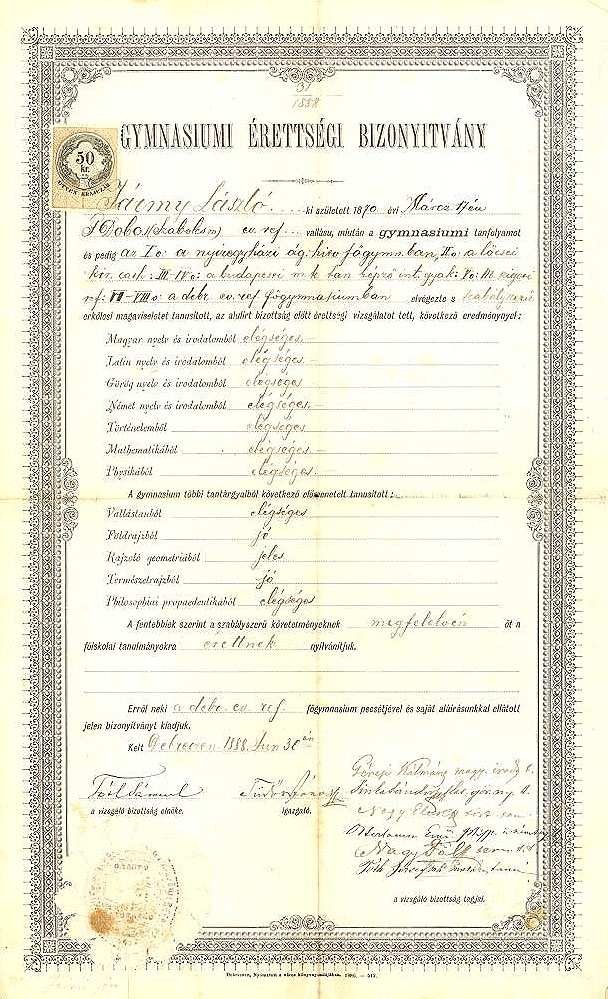 31
1888
GYMNASIUMI ÉRETTSÉGI BIZONYITVÁNY
50
Kr.
Jármy László ki született 1870 évi Márcz 17én
T Dobo (Szabolcsm) ev. ref. vallásu, miután a gymnasiumi tanfolyamot
és pedig az I o: a nyiregyházi ág. hitv főgymn.ban, II o: a lőcsei
kir. cath: III-IV o: a budapesti m.k. tan képző int. gyak: V o:
ref: VII-VIII o: a debr. ev. ref főgymnasiumban elvégezte s szabályszerű
erkölcsi magaviseletet tanusított, az alulirt bizottság előtt érettségi vizsgálatot tett, következő eredménynyel:
Magyar nyelv és irodalomból elégséges.—
Latin nyelv és irodalomból elégséges
Görög nyelv és irodalomból elégséges
Német nyelv és irodalomból elégséges.—
Történelemből elégséges
Mathematikából elégséges.—
Physikából elégséges
A gymnasium többi tantárgyaiból következő előmenetelt tanusitott:
Vallástanból elégséges
Földrajzból jó
Rajzoló geometriából jeles
Természetrajzból jó
Philosophiai propaedeutikából elégséges
A fentebbiek szerint a szabályszerü követelményeknek megfelelvén őt a
főiskolai tanulmányokra érettnek nyilvánitjuk.
Erről neki a debr. ev. ref. főgymnasium pecsétjével és saját aláirásunkkal ellátott
jelen bizonyitványt kiadjuk.
Kelt Debreczen. 1888. Jun 30 án
Tóth Sámuel
a vizsgáló bizottság elnöke.
igazgató.
Géresi Kálmán magy. irod.
Nagy
Nagy Pál
Tóth
a vizsgáló bizottság tagjai.
Debreczen, Nyomatott a város könyvnyomdájában. 1886. — 512.